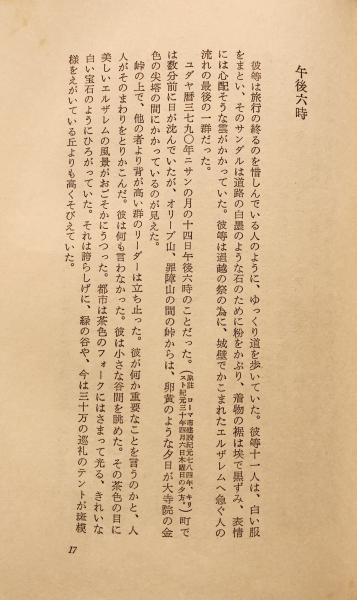 午後六時
彼等は旅行の終るのを惜しんでいる人のように、ゆっくり道を歩いていた。彼等十一人は、白い服
をまとい、そのサンダルは道路の白墨のような石のために粉をかぶり、着物の裾は埃で黒ずみ、表情
には心配そうな雲がかかっていた。彼等は過越の祭の為に、城壁でかこまれたエルザレムへ急ぐ人の
流れの最後の一群だった。
ユダヤ暦三七九〇年ニサンの月の十四日午後六時のことだった。(原註 ローマ市建設紀元七八四年、キリスト紀元三十年四月六日木曜日の夕方。)町で
は数分前に日が沈んでいたが、オリーブ山、罪障山の間の峠からは、卵黄のような夕日が大寺院の金
色の尖塔の間にかかっているのが見えた。
峠の上で、他の者より背が高い群のリーダーは立ち止った。彼が何か重要なことを言うのかと、人
人がそのまわりをとりかこんだ。彼は何も言わなかった。彼は小さな谷間を眺めた。その茶色の目に
美しいエルザレムの風景がおごそかにうつった。都市は茶色のフォークにはさまって光る、きれいな
白い宝石のようにひろがっていた。それは誇らしげに、緑の谷や、今は三十万の巡礼のテントが斑模
様をえがいている丘よりも高くそびえていた。
17